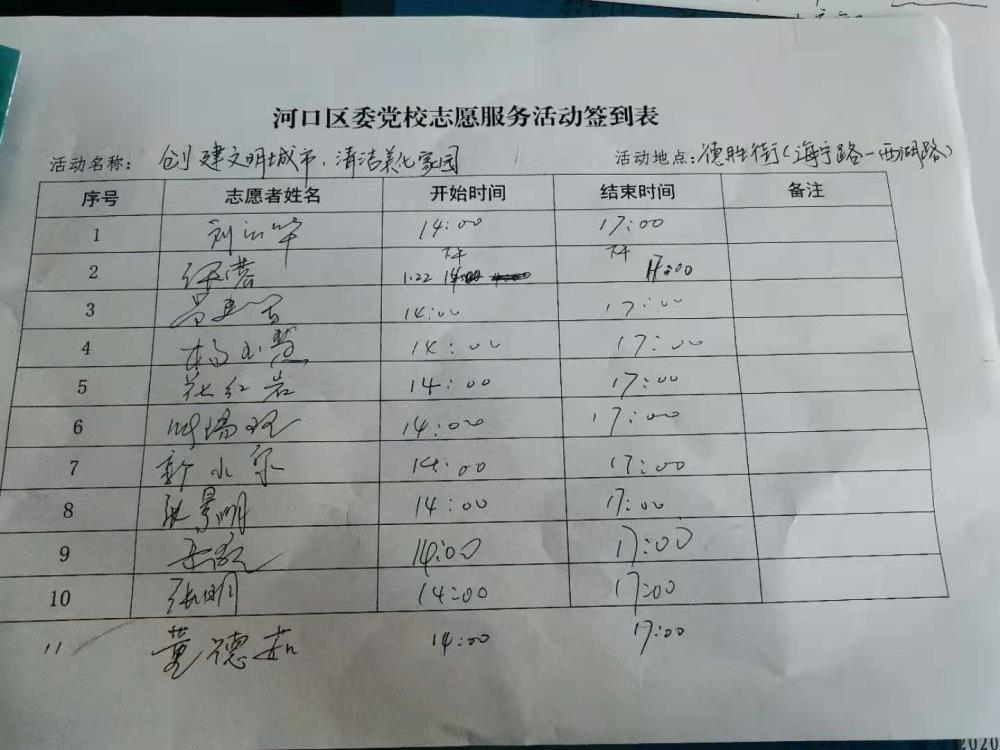 河口区委党校志愿服务活动签到表
活动名称：创建文明城市，清洁美化家园 活动地点：德胜街（海宁路－西湖路）
序号 志愿者姓名 开始时间 结束时间 备注
1 14:00 17:00
下午 下午
2 1.22 14:00 17:00
3 14:00 17:00
4 杨玉慧 14:00 17:00
5 红岩 14:00 17:00
6 14:00 17:00
7 14:00 17:00
8 张景明 14:00 17:00
9 14:00 17:00
10 张明 14:00 17:00
11 董德茹 14:00 17:00
2020